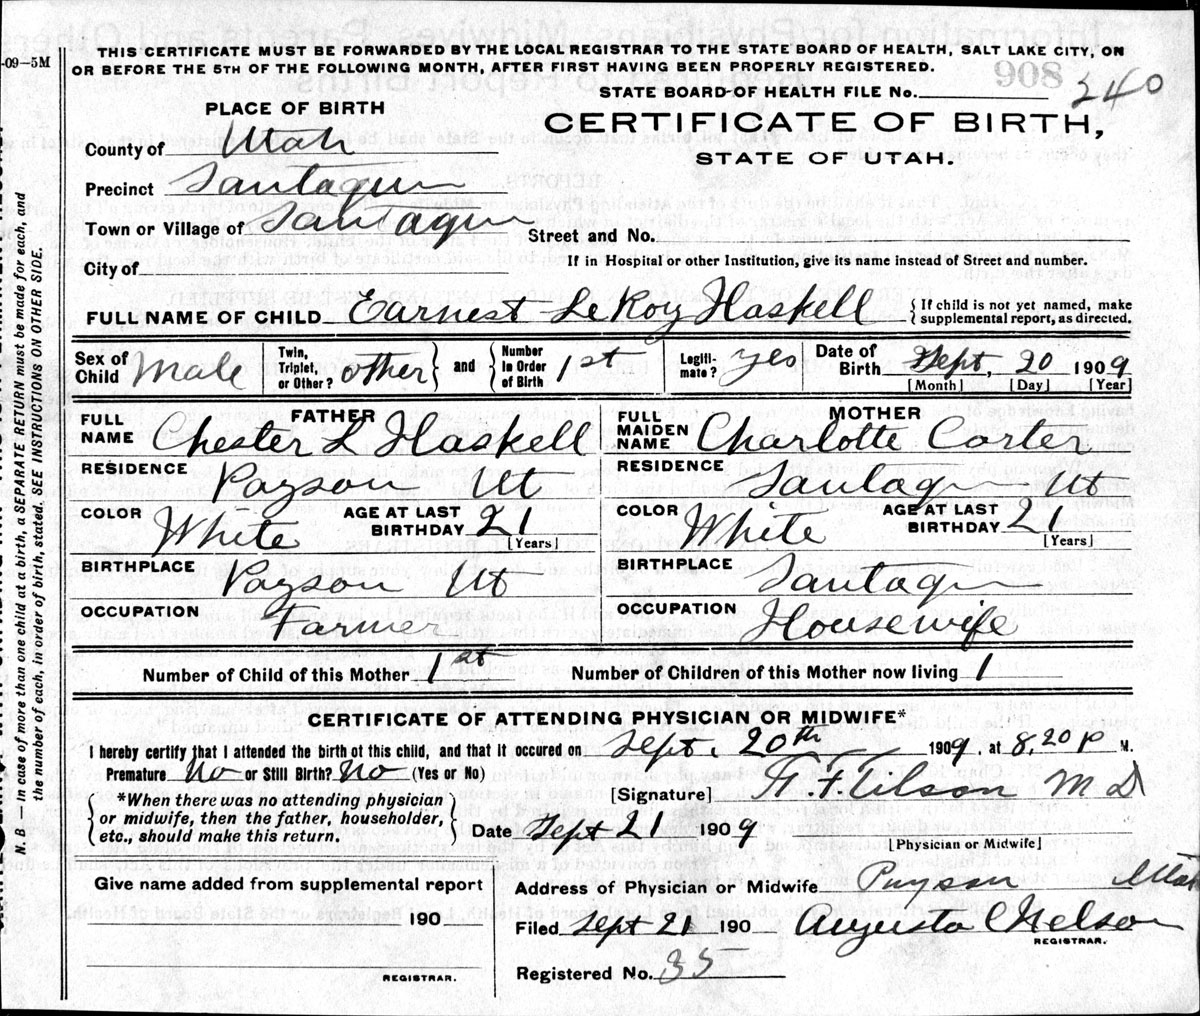 -09-5M
THIS CERTIFICATE MUST BE FORWARDED BY THE LOCAL REGISTRAR TO THE STATE BOARD OF HEALTH, SALT LAKE CITY, ON
OR BEFORE THE 5TH OF THE FOLLOWING MONTH, AFTER FIRST HAVING BEEN PROPERLY REGISTERED.
908
STATE BOARD OF HEALTH FILE No. 240
PLACE OF BIRTH
CERTIFICATE OF BIRTH,
STATE OF UTAH.
County of Utah
Precinct Santaquin
Town or Village of Santaquin
Street and No.
City of
If in Hospital or other Institution, give its name instead of Street and number.
FULL NAME OF CHILD Earnest LeRoy Haskell {If child is not yet named, make
supplemental report, as directed.
Sex of Child Male Twin, Triplet, or Other? other } and { Number in Order of Birth 1st Legiti-mate? yes Date of Birth Sept, 20 1909
[Month] [Day] [Year]
FATHER
FULL NAME Chester L Haskell
MOTHER
FULL MAIDEN NAME Charlotte Carter
RESIDENCE Payson Ut
RESIDENCE Santaqn Ut
COLOR White AGE AT LAST BIRTHDAY 21 [Years]
COLOR White AGE AT LAST BIRTHDAY 21 [Years]
BIRTHPLACE Payson Ut
BIRTHPLACE Santaqn
OCCUPATION Farmer
OCCUPATION Housewife
Number of Child of this Mother 1st Number of Children of this Mother now living 1
CERTIFICATE OF ATTENDING PHYSICIAN OR MIDWIFE*
I hereby certify that I attended the birth of this child, and that it occured on Sept. 20th 1909, at 8,20 P M.
Premature No or Still Birth? No (Yes or No)
[Signature] M D
{*When there was no attending physician
or midwife, then the father, householder,
etc., should make this return.}
Date Sept 21 1909
[Physician or Midwife]
Give name added from supplemental report
190
REGISTRAR.
Address of Physician or Midwife Payson Utah
Filed Sept 21 190 Augusta Nelson
REGISTRAR.
Registered No. 35
N. B.—In case of more than one child at a birth, a SEPARATE RETURN must be made for each, and
the number of each, in order of birth, stated. SEE INSTRUCTIONS ON OTHER SIDE.